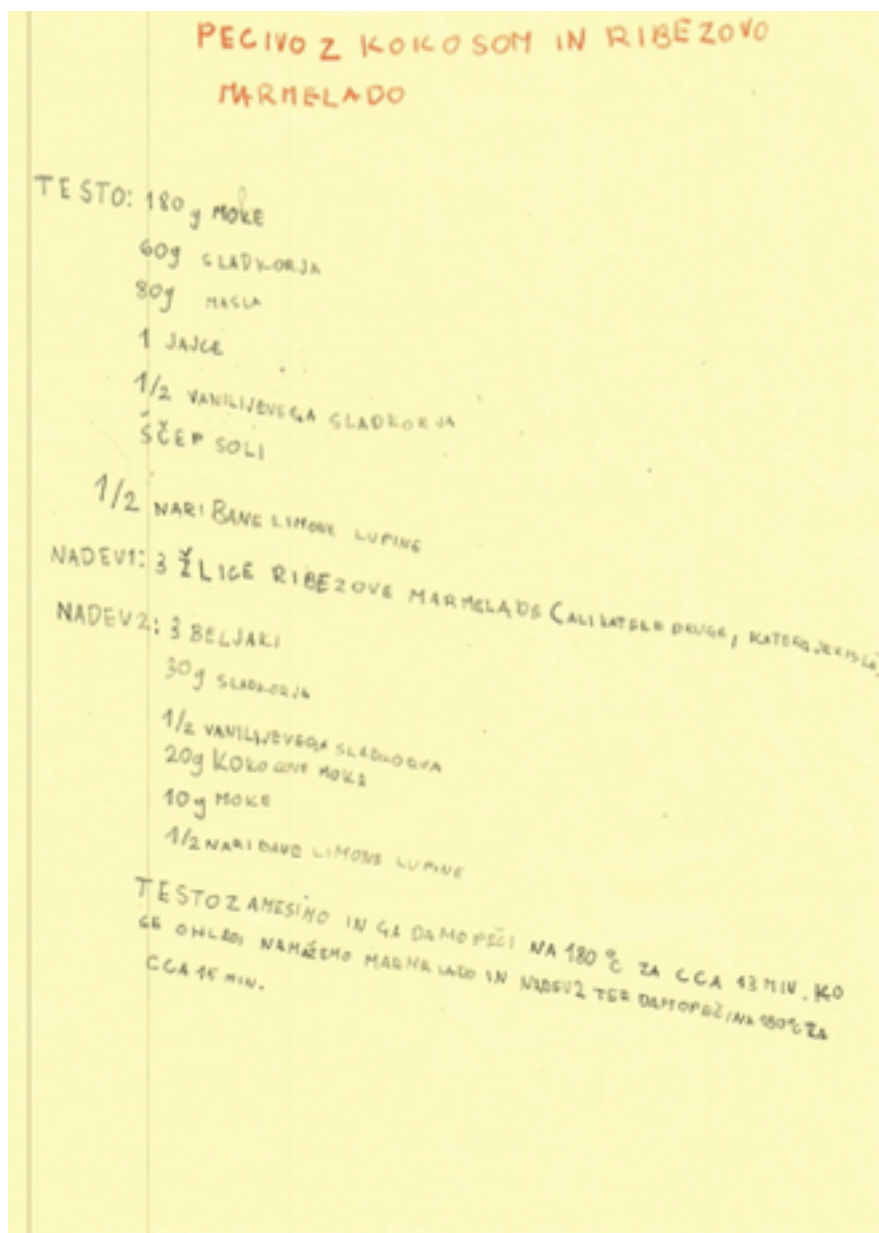 PECIVO Z KOKOSOM IN RIBEZOVO
MARMELADO
TESTO: 180g MOKE
60g SLADKORJA
80g MASLA
1 JAJCE
1/2 VANILIJEVEGA SLADKORJA
ŠČEP SOLI
1/2 NARIBANE LIMONE LUPINE
NADEV1: 3 ŽLICE RIBEZOVE MARMELADE (ALI KATERE DRUGE, KATERA JE KISLA)
NADEV2: 3 BELJAKI
30g SLADKORJA
1/2 VANILIJEVEGA SLADKORJA
20g KOKOSOVE MOKE
10g MOKE
1/2 NARIBANE LIMONE LUPINE
TESTO ZAMESIMO IN GA DAMO PEČI NA 180°C ZA CCA 13 MIN. KO
SE OHLADI NAMAŽEMO MARMELADO IN NADEV2 TER DAMO PEČI NA 180°C ZA
CCA 15 MIN.